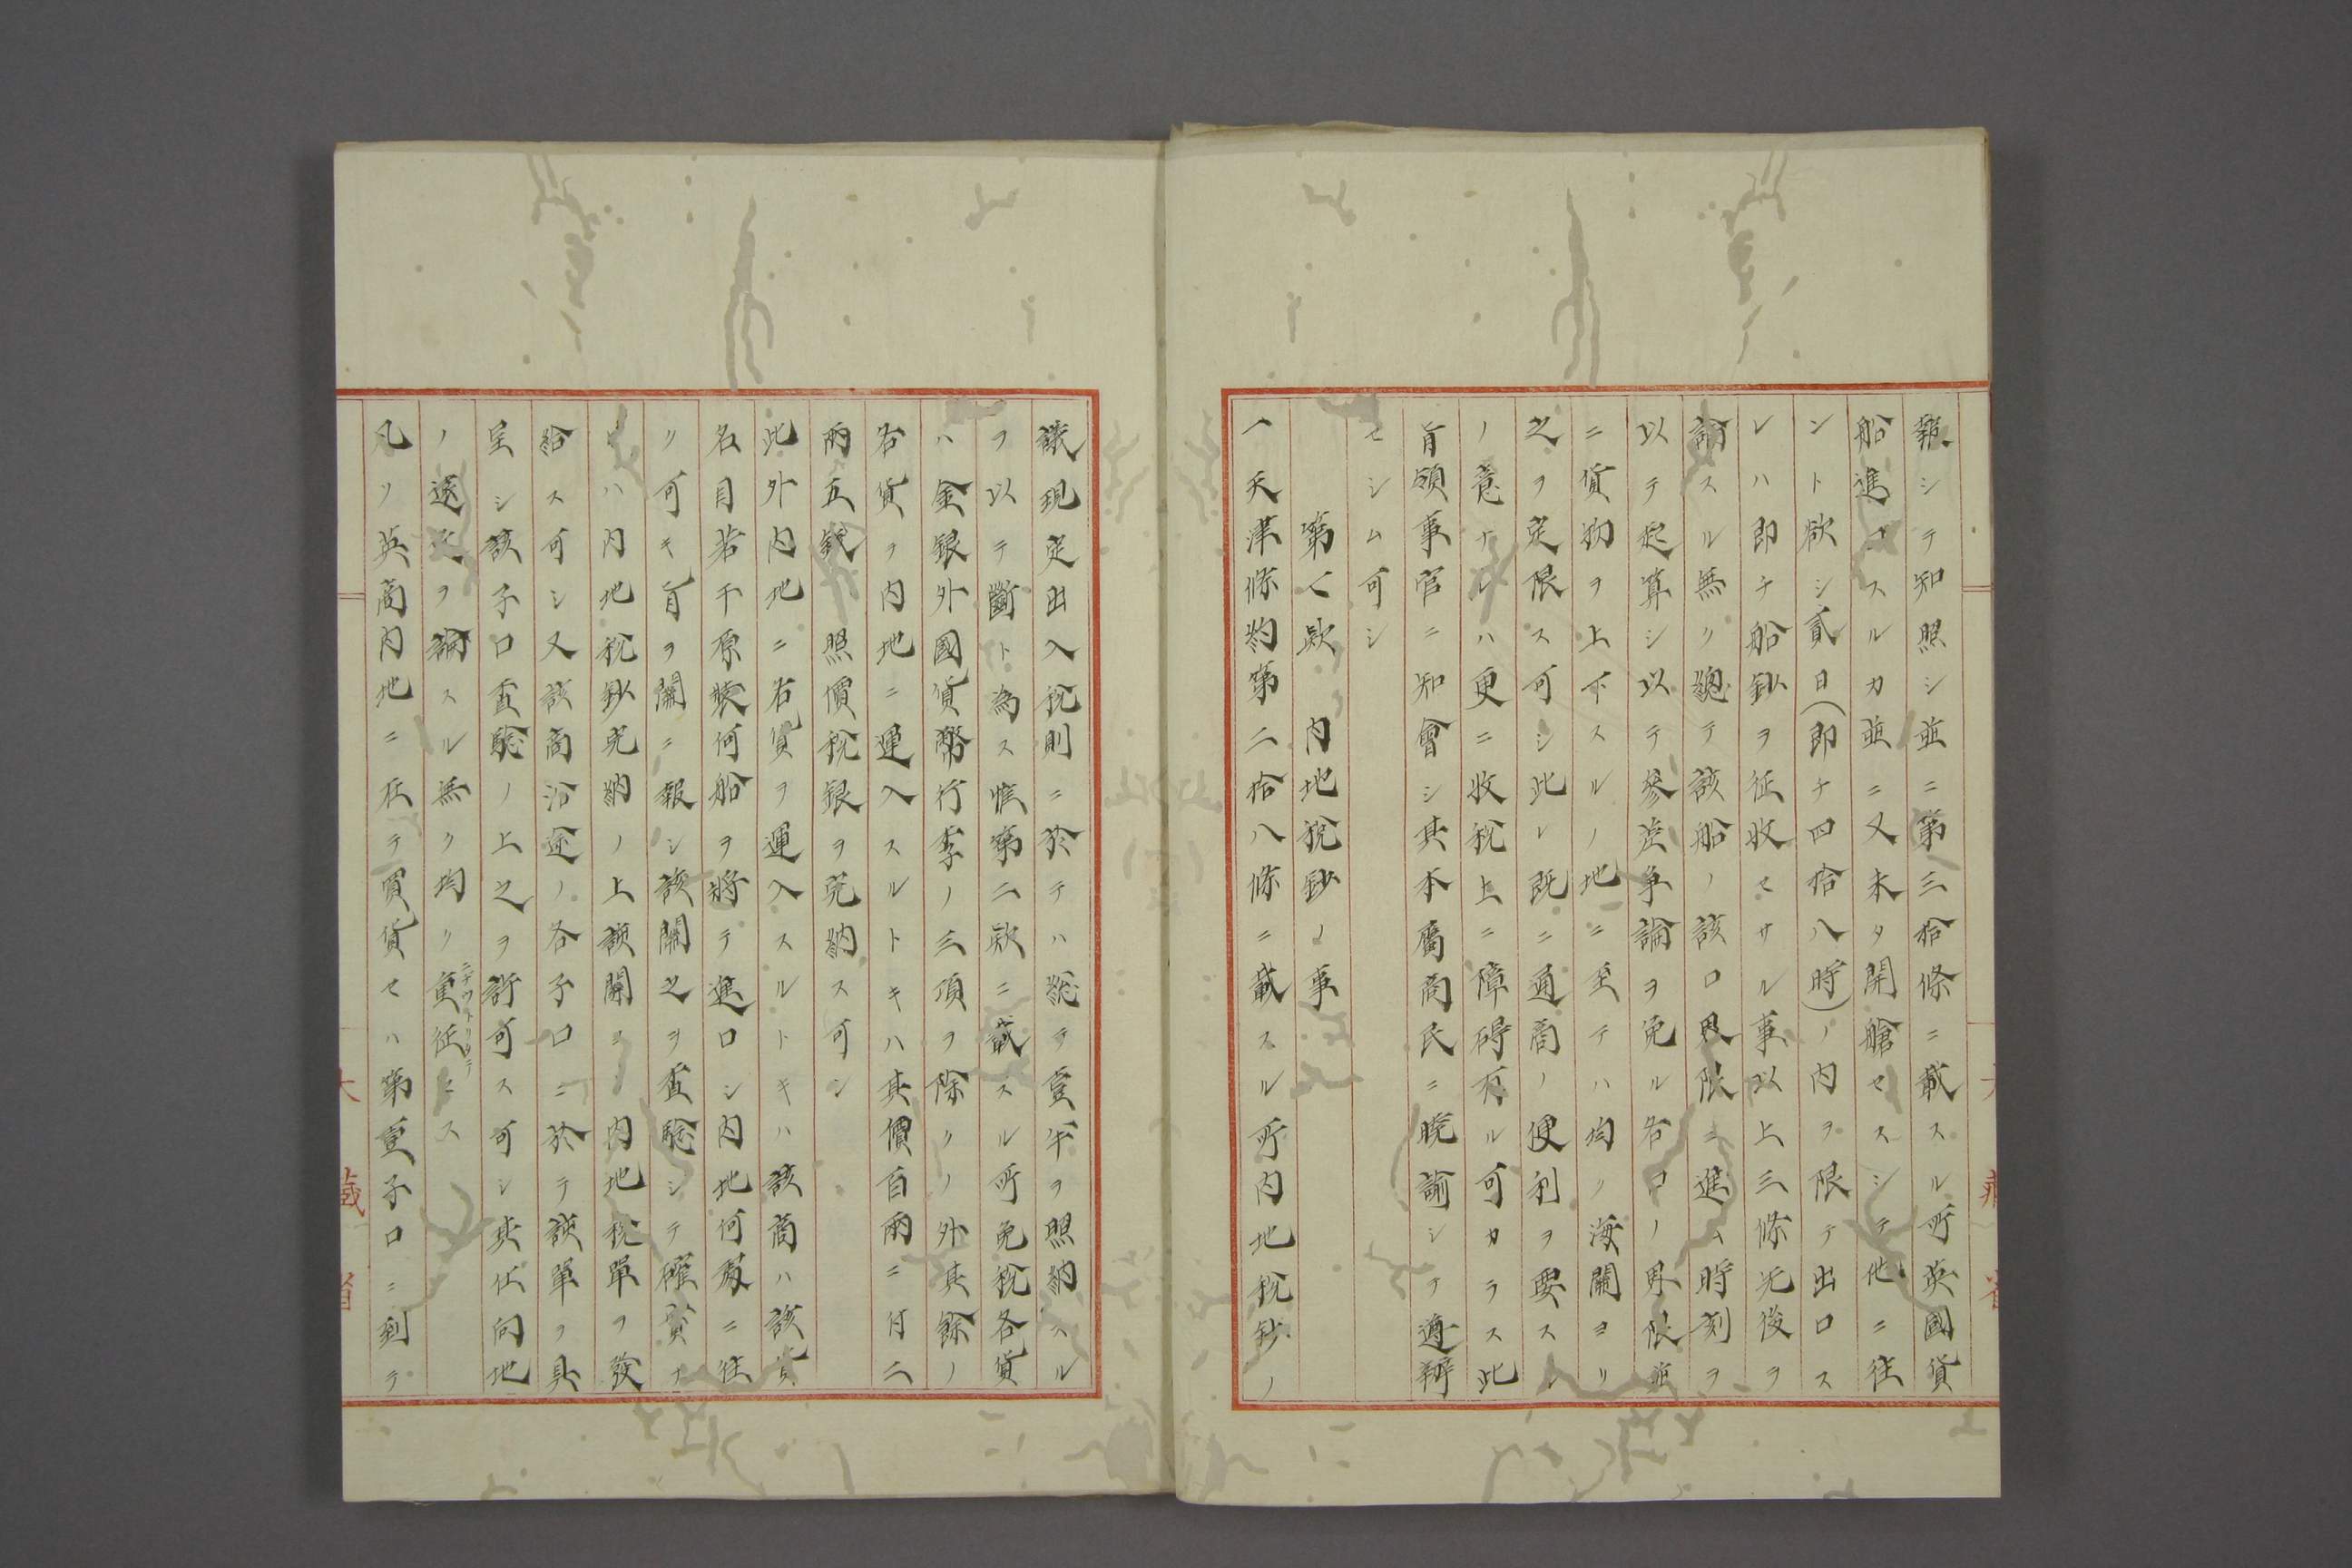 報シテ知照シ並ニ第三拾條ニ載スル所英國貨
船進口スルカ並ニ又未タ開艙セスシテ他ニ往
ント欲シ貳日(即チ四拾八時)ノ内ヲ限テ出口ス
レハ即チ船鈔ヲ征收セサル事以上三條先後ヲ
論スル無ク總テ該船ノ該口界限ニ進ム時刻ヲ
以テ起算シ以テ參差爭論ヲ免ル各口ノ界限並
ニ貨物ヲ上下スルノ地ニ至テハ均ク海關ヨリ
之ヲ定限ス可シ此レ既ニ通商ノ便利ヲ要スル
ノ意ナレハ更ニ收稅上ニ障碍有ル可カラス此
旨領事官ニ知會シ其本屬商民ニ曉諭シテ遵辦
セシム可シ
第七欵 内地稅鈔ノ事
一天津條約第二拾八條ニ載スル所内地稅鈔ノ
議現定出入稅則ニ於テハ總テ壹半ヲ照納スル
ヲ以テ斷ト為ス惟第二欵ニ載スル所免稅各貨
ハ金銀外國貨幣行李ノ三項ヲ除クノ外其餘ノ
各貨ヲ内地ニ運入スルトキハ其價百兩ニ付二
兩五錢照價稅銀ヲ完納ス可シ
此外内地ニ各貨ヲ運入スルトキハ該商ハ該貨
名目若干原裝何船ヲ將テ進口シ内地何處ニ往
ク可キ旨ヲ關ニ報シ該關之ヲ査驗シテ確實ナ
レハ内地稅鈔完納ノ上該關ヨリ内地稅單ヲ發
給ス可シ又該商沿途ノ各子口ニ於テ該單ヲ具
呈シ該子口査驗ノ上之ヲ許可ス可シ其仕向地
ノ遠近ヲ論スル無ク均ク重征セス
凡ソ英商内地ニ在テ買貨セハ第壹子口ニ到テ
大藏省